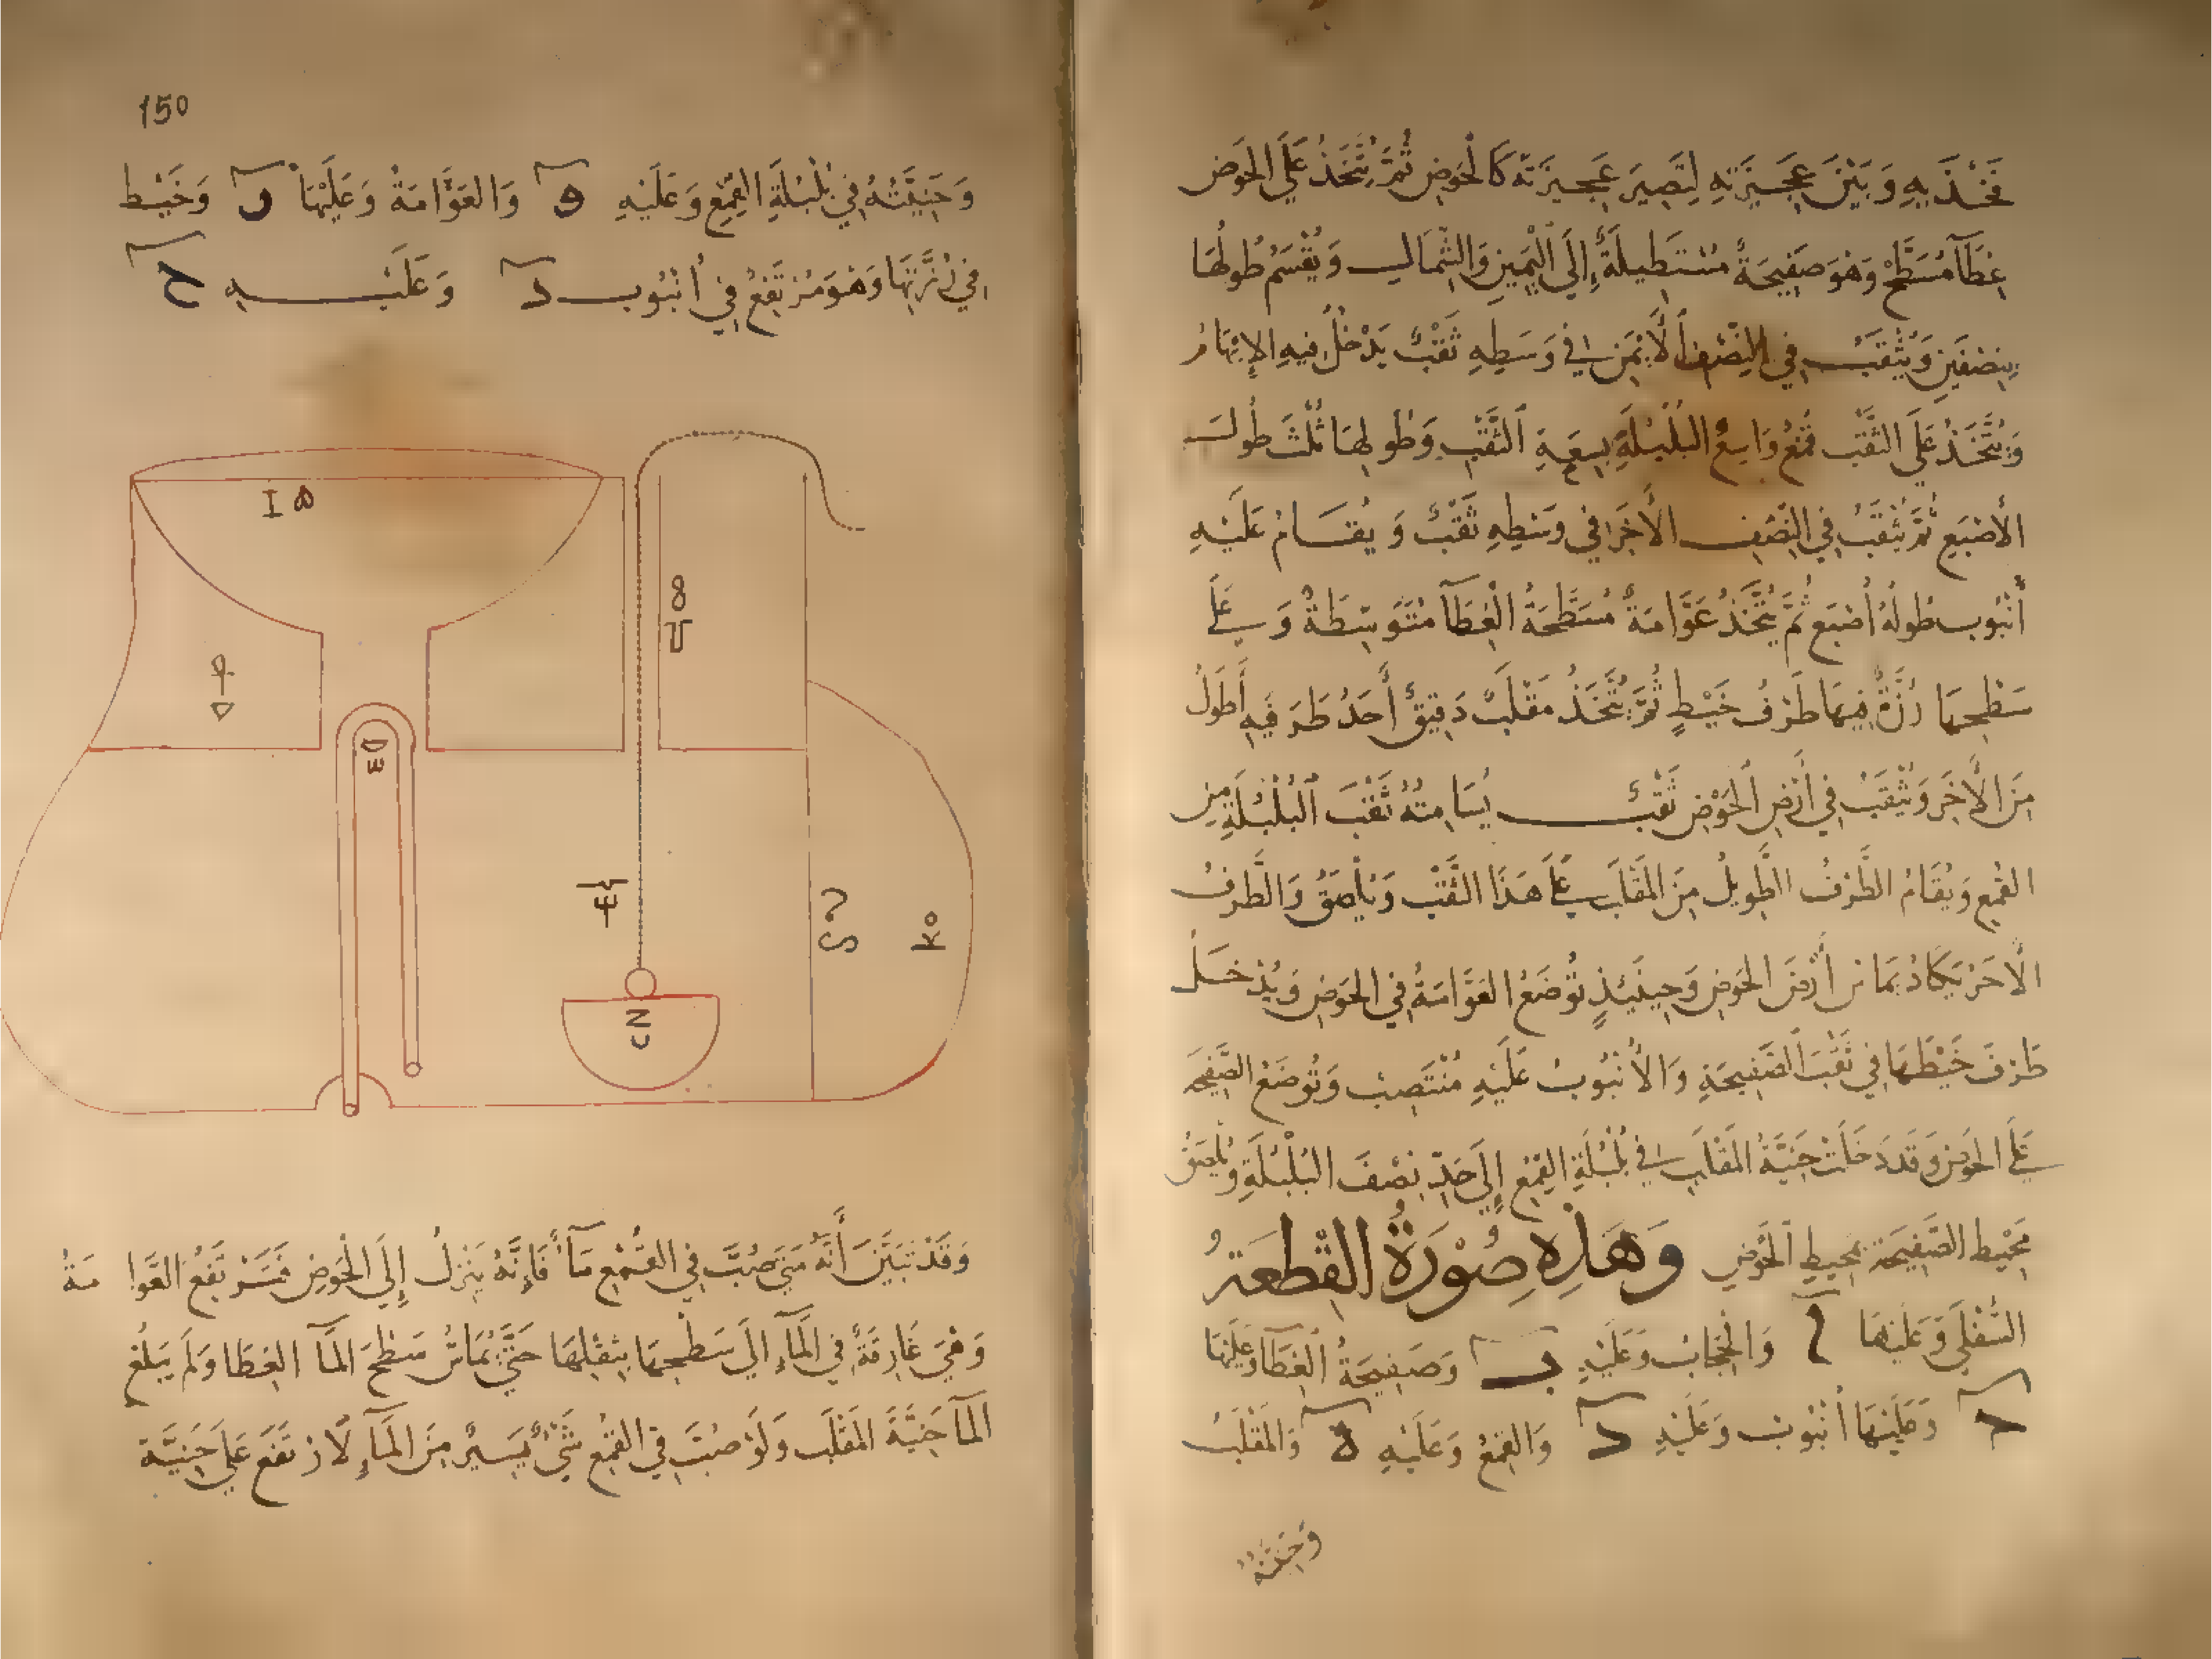 فَخْذَيهِ وَبَيْنَ عَجِيزَتِهِ لِتَصِيرَ عَجِيزَتُهُ كَالحَوْضِ ثُمَّ يُتَّخَذُ عَلَى الحَوْضِ
غِطَآ مُسَطَّحٌ وَهُوَ صَفِيحَةٌ مُسْتَطِيلَةٌ إِلَى اليَمِينِ وَالشِّمَالِ وَيُقْسَمُ طُولُهَا
بِنِصْفَينِ وَيُثْقَبُ فِي النِّصْفِ الأَيْمَنِ فِي وَسَطِهِ ثَقْبٌ يَدْخُلُ فِيهِ الإِبْهَامُ
وَيُتَّخَذُ عَلَى الثَّقْبِ قُمْعٌ وَاسِعٌ البُلْبُلَةِ بِسِعَةِ الثَّقْبِ وَطُولِهَا ثُلْثُ طُولِ
الأَصْبَعِ ثُمَّ يُثْقَبُ فِي النِّصْفِ الأَخَرِ فِي وَسَطِهِ ثَقْبٌ وَيُقَامُ عَلَيْهِ
أُنْبُوب طُولُهُ أُصْبَع ثُمَّ يُتَّخَذُ عَوَّامَةٌ مُسَطَّحَةُ الْغِطَآ مُتَوَسِّطَةٌ وَعَلَى
سَطْحِهَا رَزَّةٌ فِيهَا طَرَفُ خَيْطٍ ثُمَّ يُتَّخَذُ مَقْلَبٌ دَقِيقٌ أَحَدُ طَرَفَيهِ أَطْوَلُ
مِنَ الأَخَرِ وَيُثْقَبُ فِي أَرْضِ الْحَوْضِ ثَقْبٌ يُسَامِتُهُ ثَقْبَ البُلْبُلَةِ مِن
القُمْعِ وَيُقَامُ الطَّرَفُ الطَّوِيلُ مِنَ المَقْلَبِ عَلَى هَذَا الثَّقْبِ وَيُلْصَقُ وَالطَّرَفُ
الأَخَرُ يَكَادُ يُمَاسُّ أَرْضَ الحَوْضِ وَحِينَئِذٍ تُوضَعُ العَوَّامَةُ فِي الحَوْضِ وَيُدْخَلُ
طَرَفَ خَيْطِهَا فِي ثَقْبِ الصَّفِيحَةِ وَالأُنْبُوبُ عَلَيْهِ مُنْتَصِبٌ وَتُوضَعُ الصَّفِيحَة
عَلَى الحَوْضِ وَقَد دَخَلَتْ حَنِيَّةُ المَقْلَبِ فِي بُلْبُلَةِ القُمْعِ إِلَى حَدِّ نِصْفِ البُلْبُلَةِ وَيُلْصَقُ
مُحِيْطُ الصَّفِيحَةِ بِمُحِيطِ الْحَوْضِ وَهَذِهِ صُوْرَةُ القِطْعَةِ
السُّفْلَى وَعَلَيْهَا ا وَالْحِجَابُ وَعَلَيْهِ ب وَصَفِيحَةُ الْغِطَآ وَعَلَيْهَا
ح وَعَلَيْهَا أُنْبُوبٌ وَعَلَيْهِ د وَالقُمْعُ وَعَلَيْهِ ه وَالمَقْلَبُ
وَحَنِيَّتُهُ
150
وَحَنِيَّتُهُ فِي بُلْبُلَةِ القُمْعِ وَعَلَيْهِ و وَالعَوَّامَةُ وَعَلَيْهَا ن وَخَيْط
فِي رَزَّتِهَا وَهُوَ مُرْتَفِعٌ فِي أُنْبُوبِ د وَعَلَيْهِ ح
وَقَدْ تَبَيَّنَ أَنَّهُ مَتَى صُبَّ فِي القُمْعِ مَآءٌ فَإِنَّهُ يَنْزِلُ إِلَى الْحَوْضِ فَتَرْتَفِعُ العَوَّامَةُ
وَهِيَ غَارِقَةٌ فِي المَآءِ إِلَى سَطْحِهَا بِثِقْلِهَا حَتَّى يُمَاسَّ سَطْحُ المَآ الغِطَا وَلَم يَبْلُغ
المَآ حَنِيَّةَ المَقْلَبِ وَلَوْ صُبَّ فِي القُمْعِ شَيْءٌ يَسِيرٌ مِنَ المَآءِ لَارْتَفَعَ عَلَى حَنِيَّة